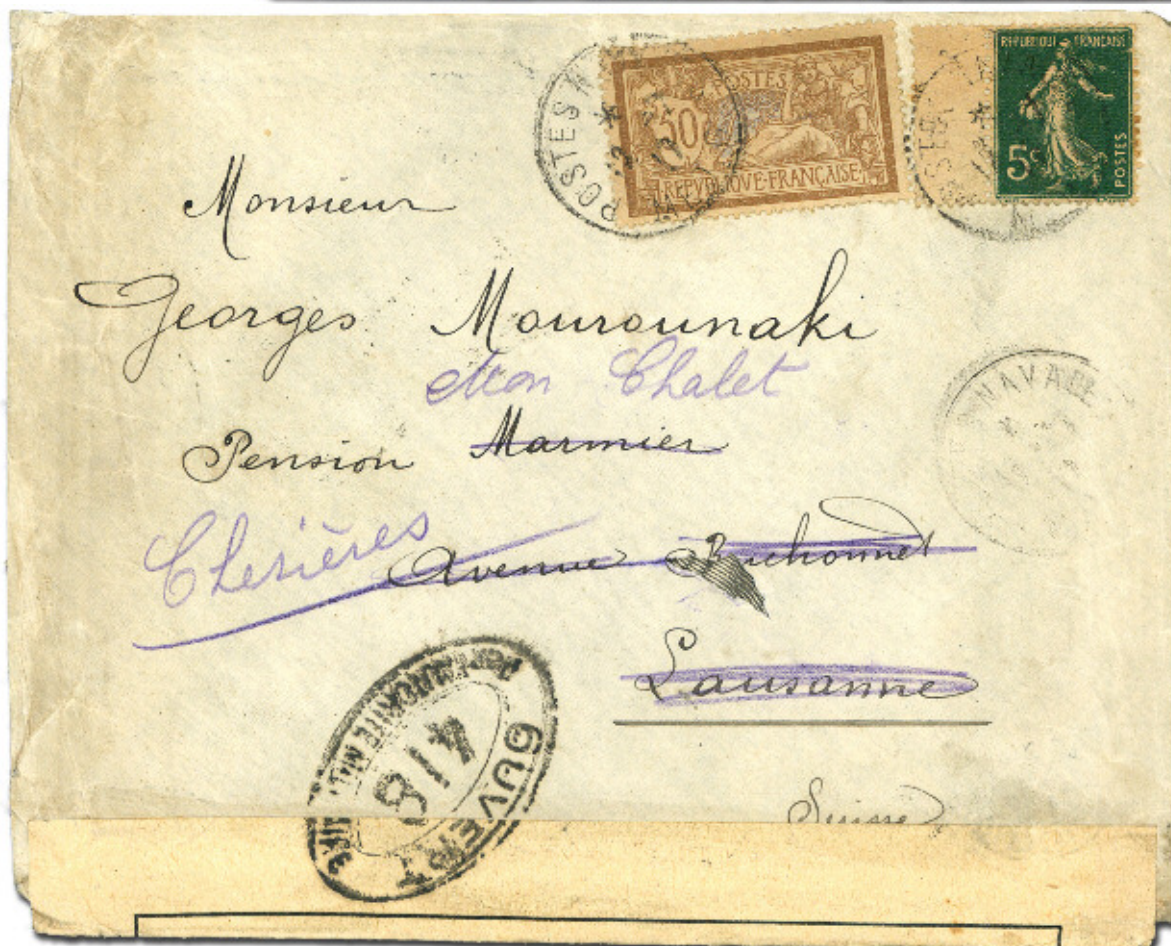 POSTES
50
POSTES
REPVBLIQVE·FRANÇAISE
REPUBLIQUE FRANÇAISE
5c
POSTES
Monsieur
Georges Mourounaki
Mon Chalet
Pension Marmier
Chesières Avenue Ruchonnet
Lausanne
Suisse
OUVERT
418